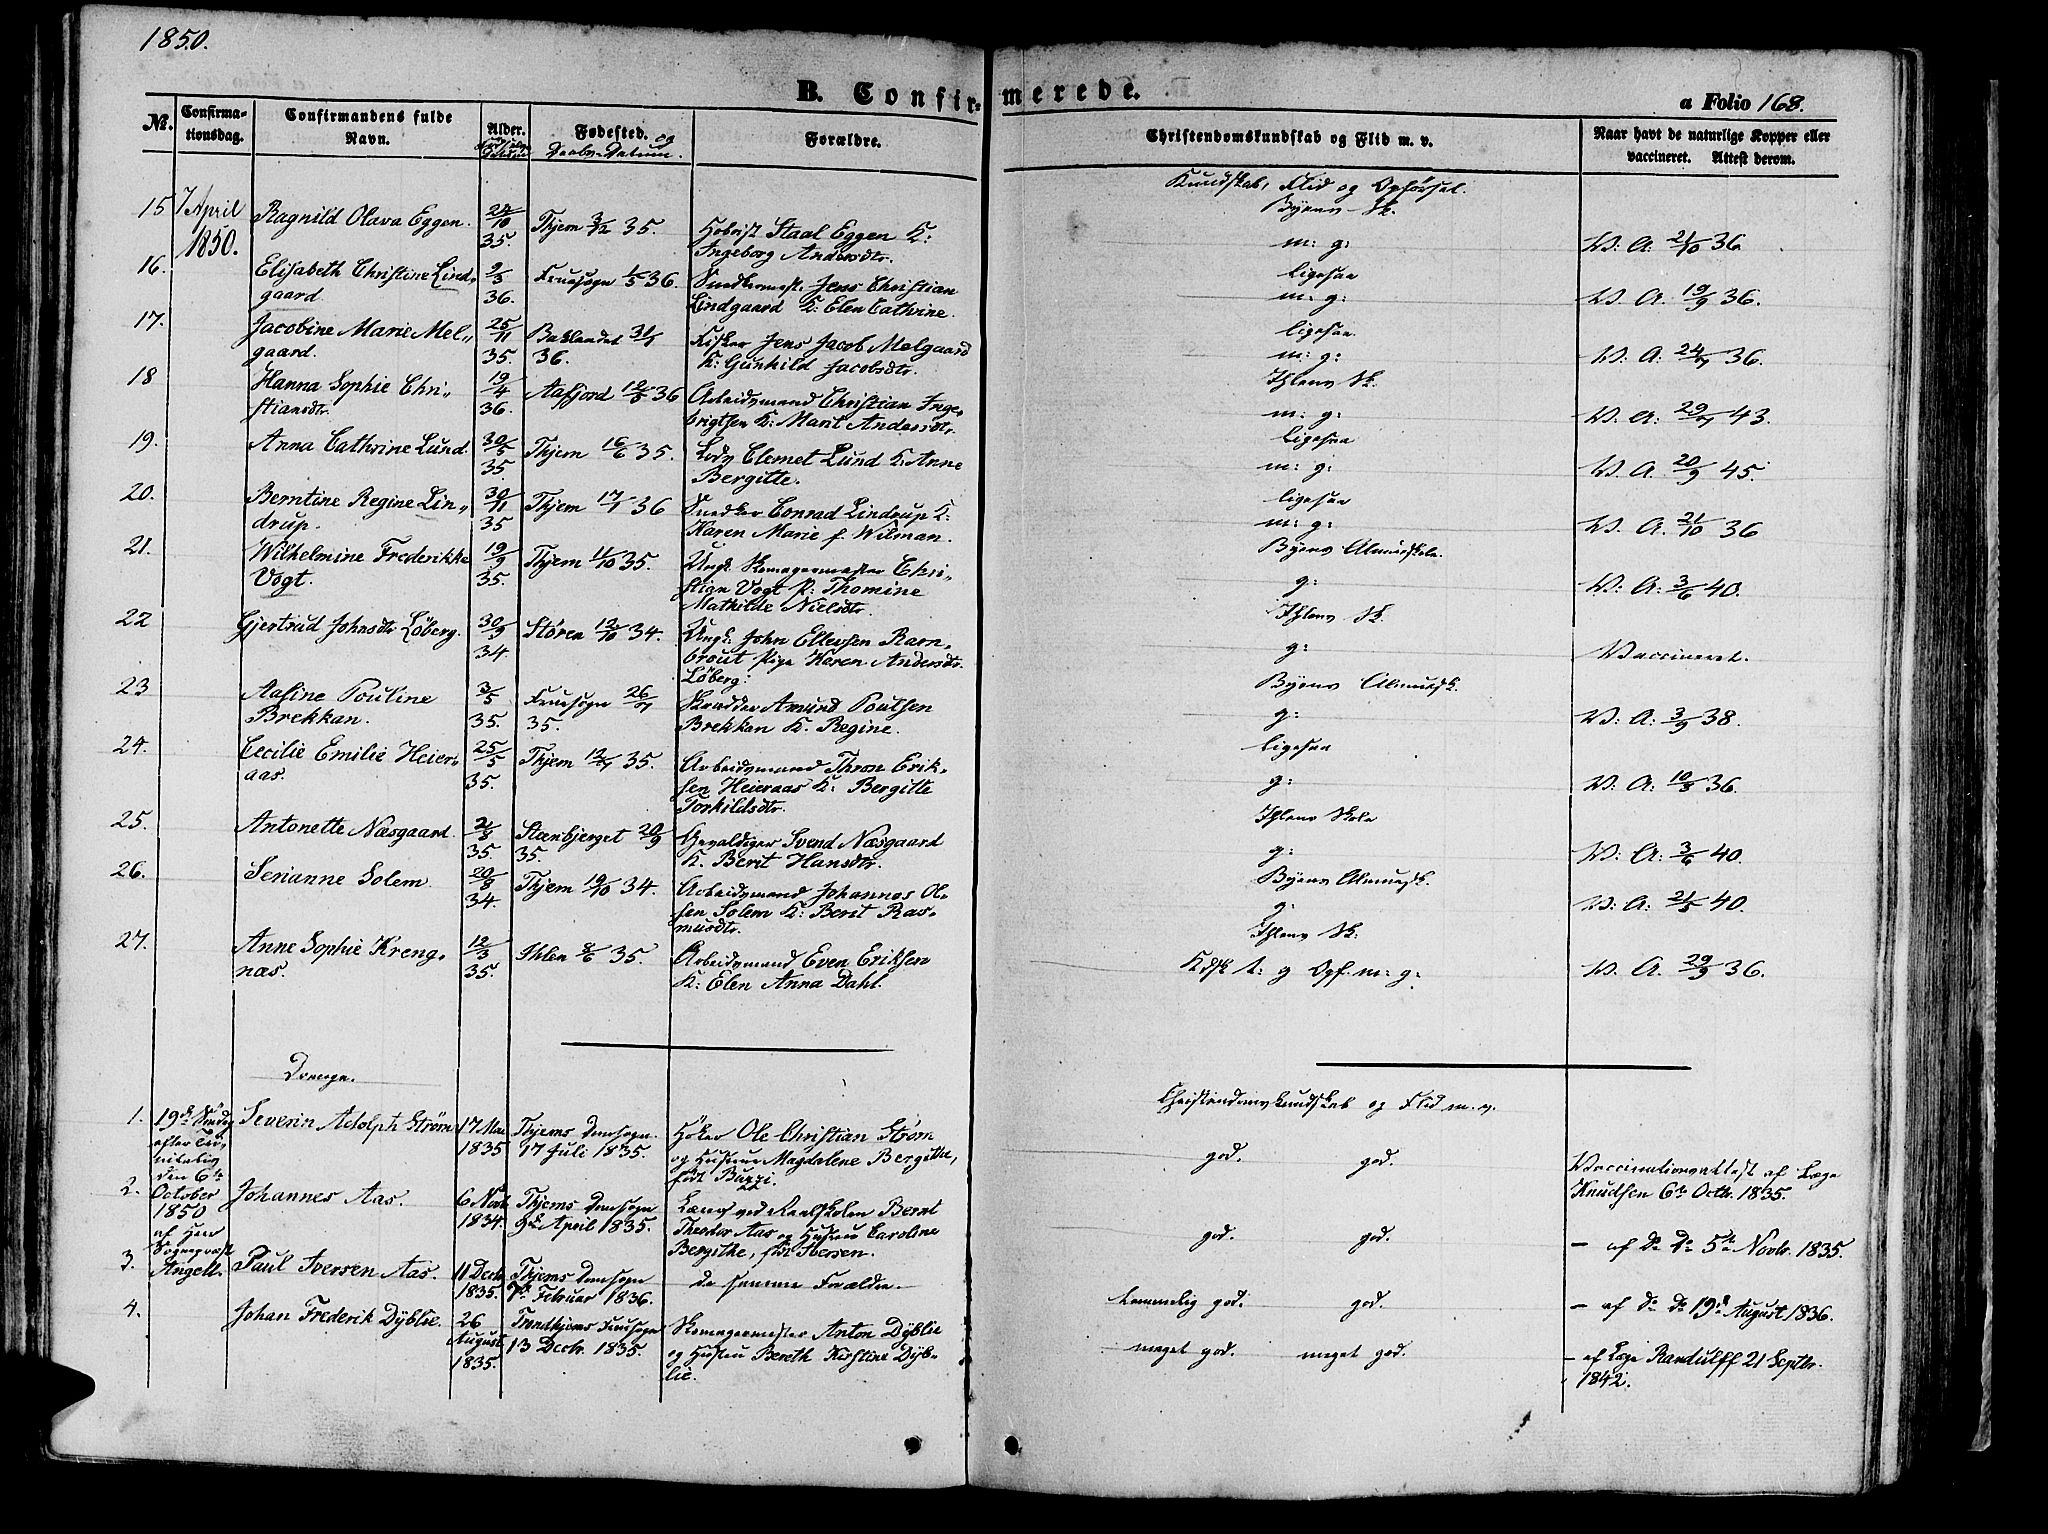 1850.
B. Confirmerede.
a Folio 168.
№. Confirmationsdag. Confirmandens fulde Navn. Alder. Fødested. og Daabs-Datum. Forældre. Christendomskundskab og Flid m. v. Naar havt de naturlige Kopper eller vaccineret. Attest derom.
Kundskab, Flid og Opførsel.
15 7 April 1850. Ragnild Olava Eggen. 24/10 35. Thjem 3/12 35. Hoboist Staal Eggen K: Ingeborg Andersdtr. Byens Sk. m: g: V: A: 21/10 36.
16. Elisabeth Christine Lindgaard. 2/3 36. Fruesogn 1/5 36. Snedkermest. Jens Christian Lindgaard K: Elen Cathrine. ligesaa m: g: V. A. 19/9 36.
17. Jacobine Marie Melgaard. 25/11 35. Baklandet 31/1 36. Fisker Jens Jacob Melgaard K: Gunhild Jacobsdtr. ligesaa. m: g: V. A: 24/7 36.
18 Hanna Sophie Christiansdtr. 19/4 36. Aafjord 12/5 36 Arbeidsmand Christian Ingebrigtsen K: Marit Andersdtr. Ihlens Sk. m: g: V. A: 29/7 43.
19. Anna Cathrine Lund. 30/5 35. Thjem 16/6 35. Lods Clemet Lund K: Anne Bergitte. ligesaa m: g: V. A: 20/9 45.
20. Berntine Regine Lindrup. 30/11 35 Thjem 17/1 36 Snedker Conrad Lindrup K: Karen Marie f. Wilman. ligesaa m: g: V. A. 21/10 36
21. Wilhelmine Frederikke Vogt. 19/9 35. Thjem 11/10 35. Ungk. Skomagermester Christian Vogt P: Thomine Mathilde Nielsdtr. Byens Almueskole. g: V. A: 3/6 40.
22 Gjertrud Johnsdtr Løberg. 30/9 34. Støren 12/10 34. Ungk. John Ellevsen Rambrout Pige Karen Andersdtr. Løberg: Ihlens Sk. g: Vaccineret.
23 Aasine Pouline Brekkan. 3/5 35. Fruesogn 26/7 35. Skrædder Amund Poulsen Brekkan K. Regine. Byens Almuesk. g: V: A: 3/9 38.
24. Cecilie Emilie Heieraas. 25/5 35. Thjem 12/7 35. Arbeidsmand Thron Eriksen Heieraas K: Bergitte Torkildsdtr. ligesaa g: V: A: 10/8 36.
25. Antonette Næsgaard. 2/8 35. Steenbjerget 20/9 35. Gevaldiger Svend Næsgaard K. Berit Hansdtr. Ihlens Skole g: V: A: 3/6 40.
26. Serianne Solem. 20/8 34. Thjem 19/10 34. Arbeidsmand Johannes Olsen Solem K: Berit Rasmusdtr. Byens Almuesk. g. V: A: 21/5 40.
27. Anne Sophie Krengnæs. 12/3 35. Ihlen 8/6 35. Arbeidsmand Even Eriksen K: Elen Anna Dahl. Ihlens Sk: Kdsk t: g Opf. m: g: V. A. 29/9 36.
Drenge.
Christendomskundskab og Flid m. v.
1. 19de Søndag efter Trinitatis den 6te October 1850 af Herr Sognepræst Angell. Severin Adolph Strøm 17 Mai 1835 Thjems Domsogn. 17 Juli 1835. Høker Ole Christian Strøm og Hustrue Magdalene Bergithe, født Buzzi. god. god. Vaccinationsattest af Læge Knudsen 6te Octbr. 1835.
2. Johannes Aas. 6 Novb 1834. Thjems Domsogn 9de April 1835. Lærer ved Realskolen Bernt Theodor Aas og Hustrue Caroline Bergithe, født Ibersen. god. god. - af Do Do 5te Novbr. 1835.
3. Paul Iversen Aas. 11 Decb 1835. Thjems Domsogn 7de Februar 1836. De samme Forældre. temmelig god. god. - af Do Do 19de August 1836.
4. Johan Frederik Dÿblie. 26 August 1835. Trondhjems Fruesogn 13 Decbr. 1835. Skomagermester Anton Dÿblie og Hustru Bereth Kirstine Dÿblie. meget god. meget god. - af Læge Randulff 21 Septbr. 1842.